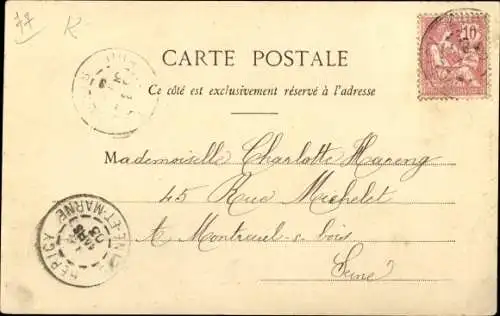 77 K
10
CARTE POSTALE
Ce côté est exclusivement réservé à l'adresse
Mademoiselle Charlotte Hareng
45 Rue Michelet
A Montreuil-s-bois
Seine
HÉRICY
MARS 03
ET-MARNE